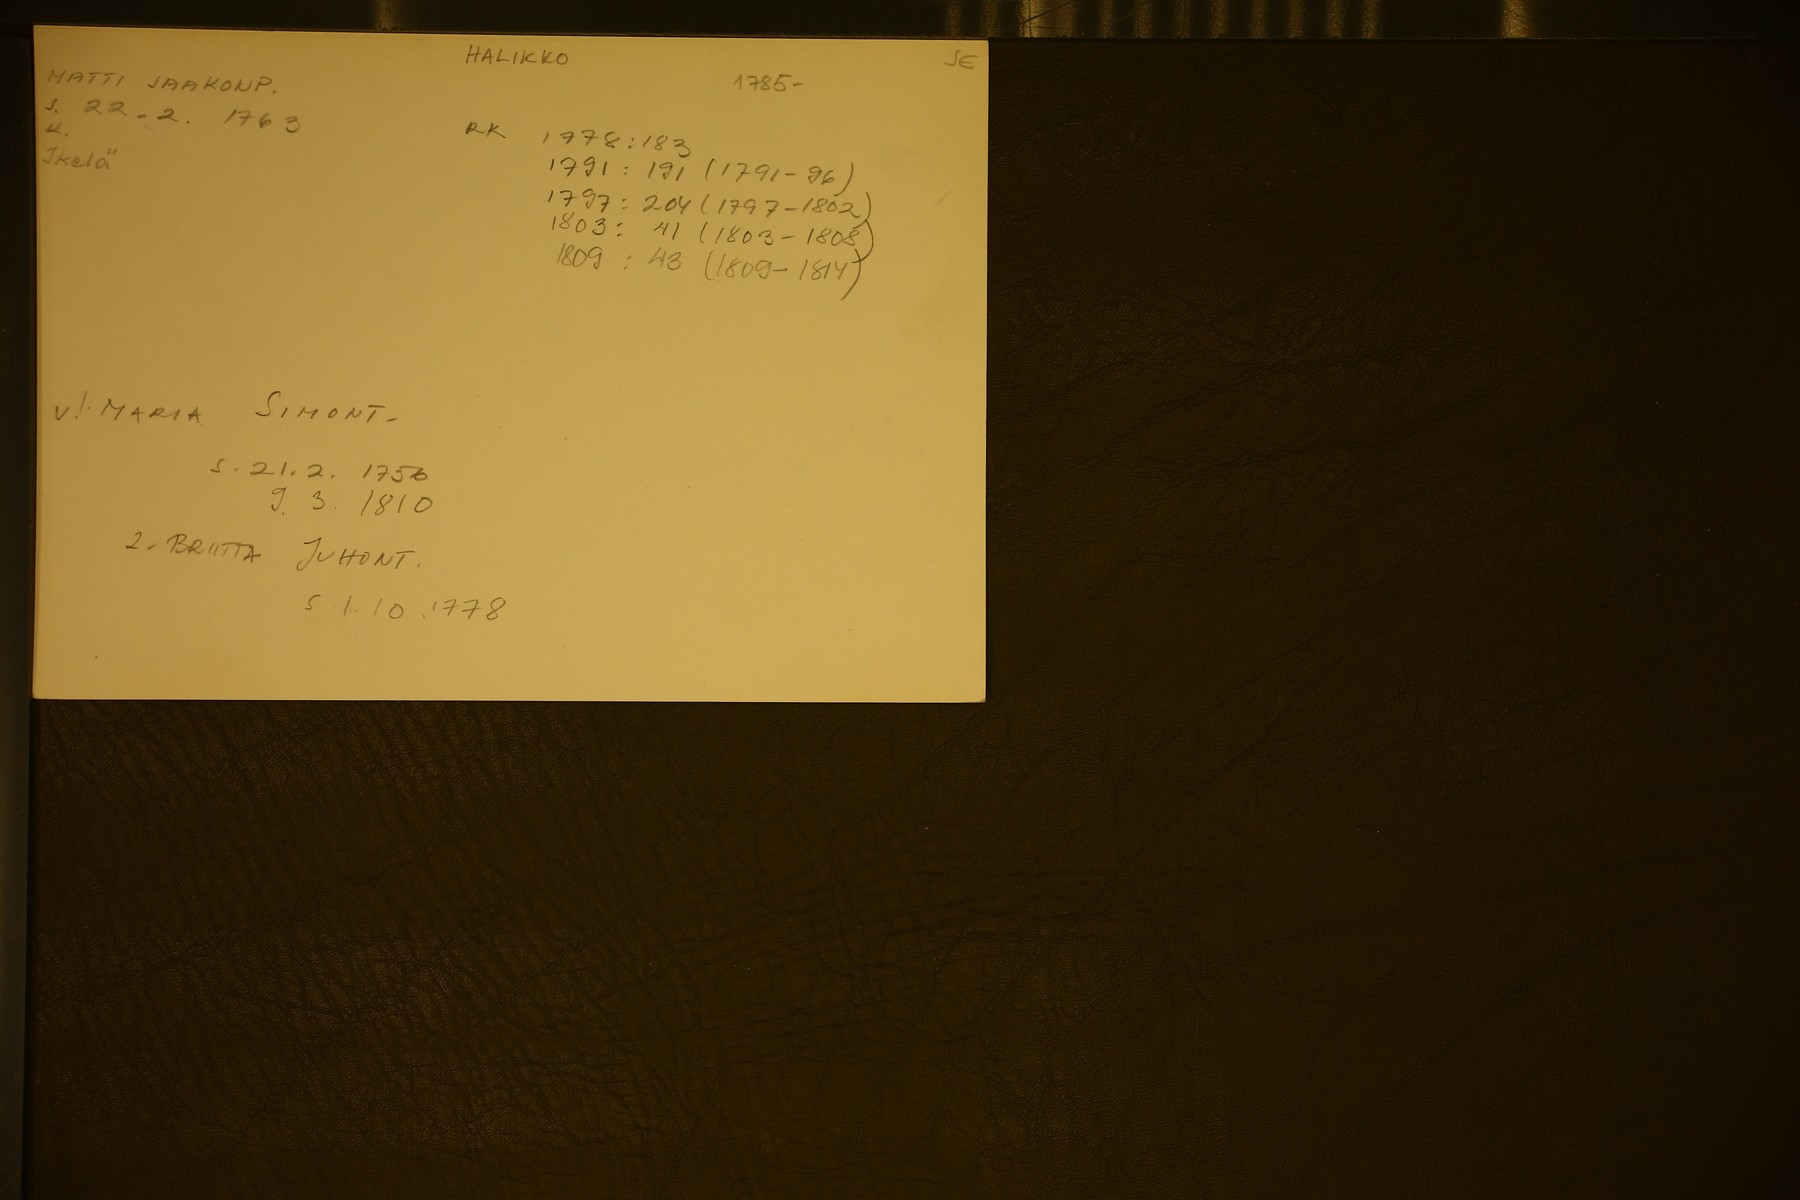 HALIKKO
SE
MATTI JAAKONP.
1785-
s. 22.2. 1763
k.
Ikelä
RK 1778:183
1791: 191 (1791-96)
1797: 204 (1797-1802)
1803: 41 (1803-1808)
1809: 43 (1809-1814)
V! MARIA SIMONT.
s. 21.2. 1756
9. 3. 1810
2. BRIITTA JUHONT.
s. 1.10.1778